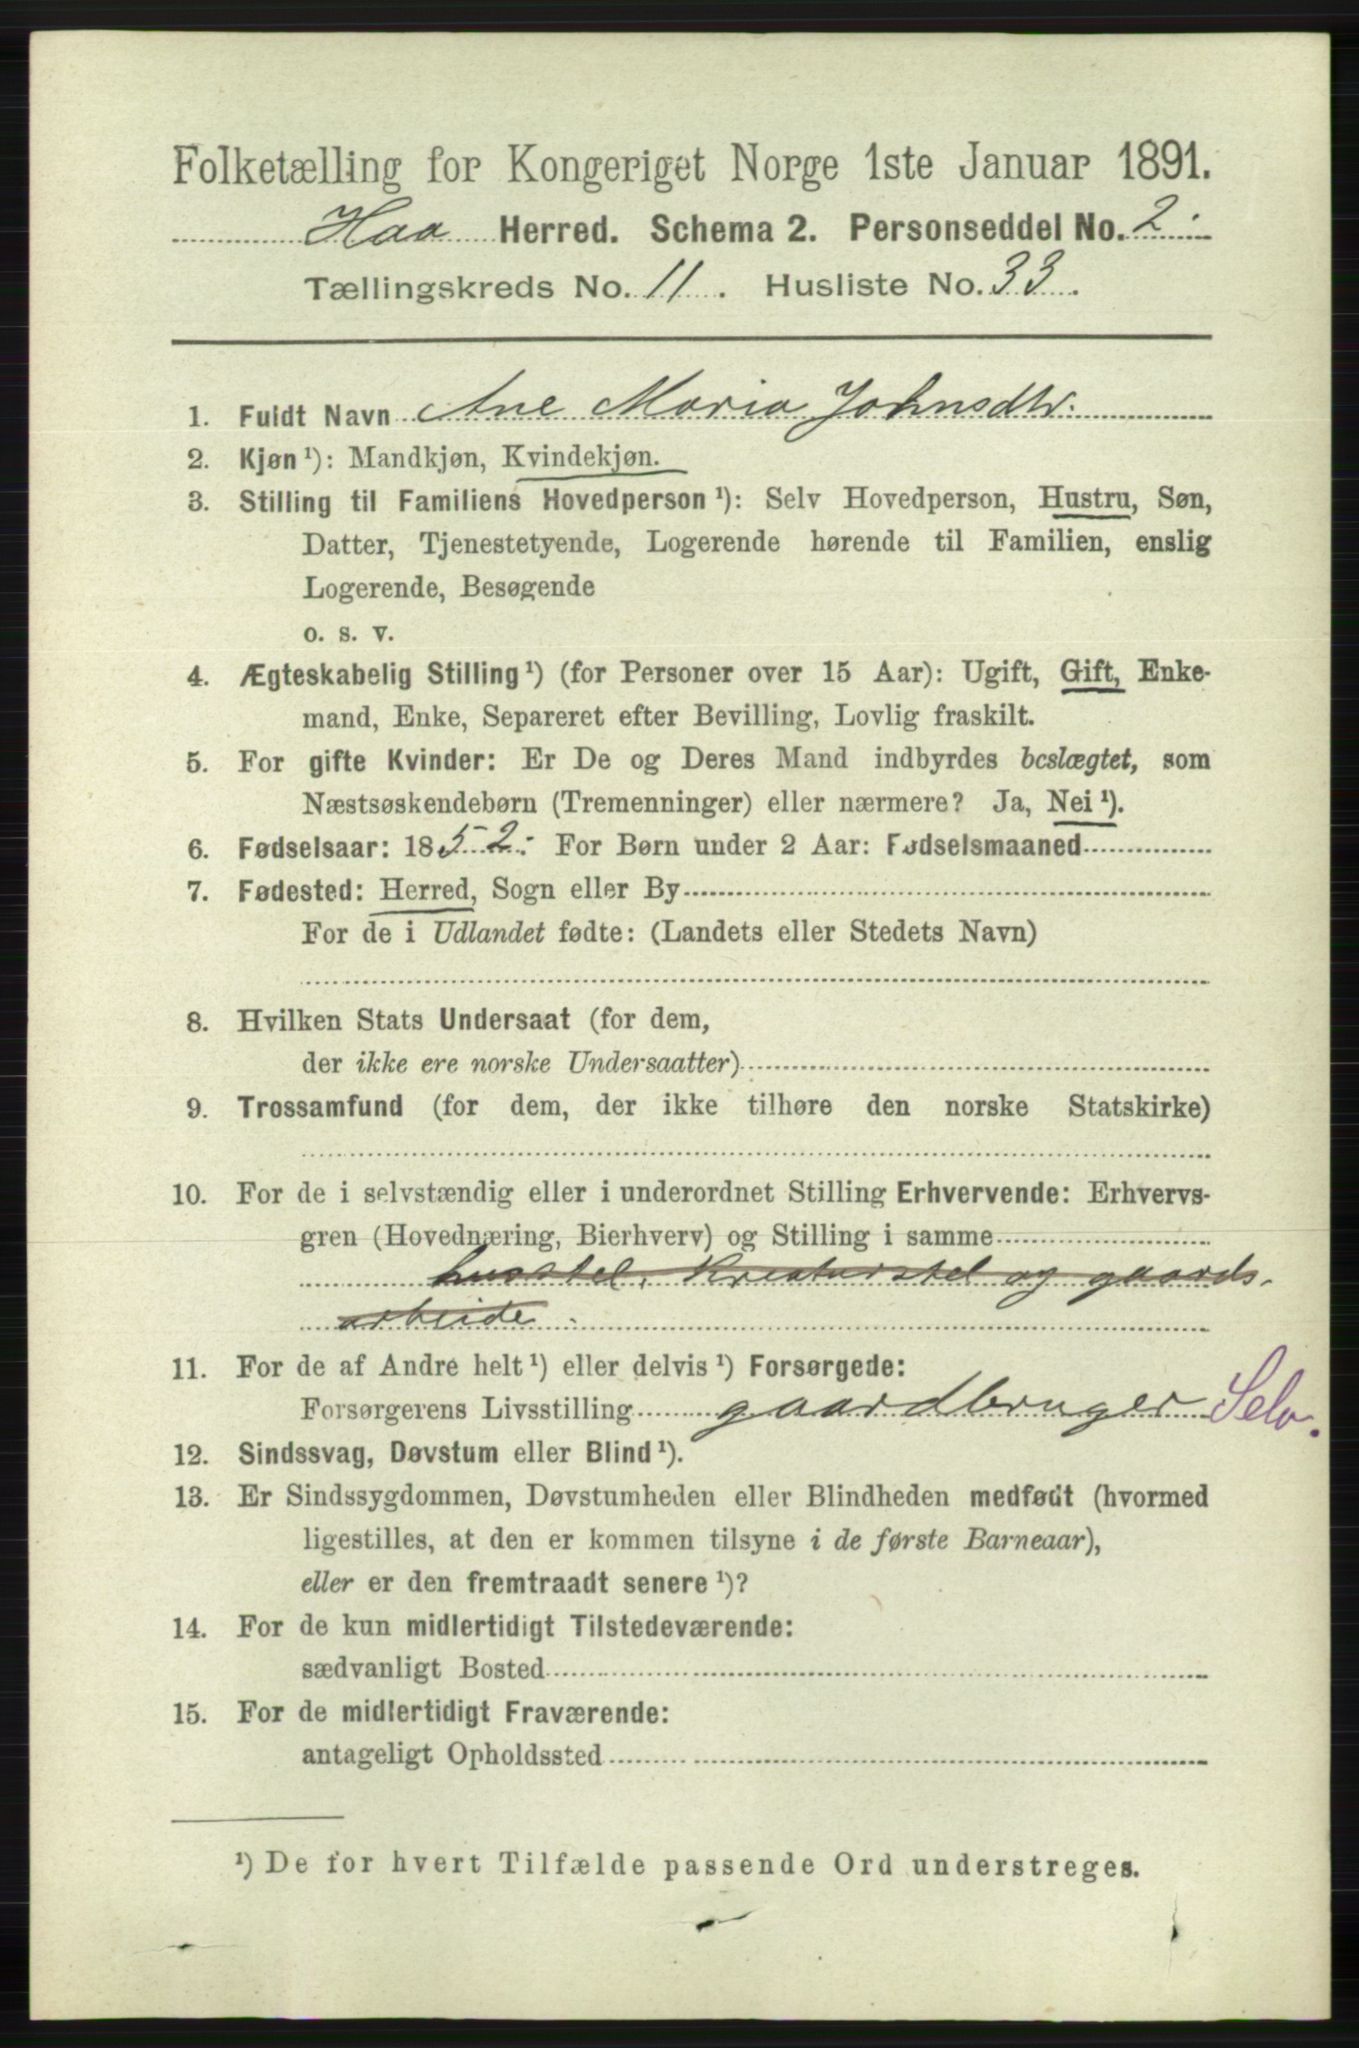 Folketælling for Kongeriget Norge 1ste Januar 1891.
Haa Herred. Schema 2. Personseddel No. 2.
Tællingskreds No. 11. Husliste No. 33.
1. Fuldt Navn Ane Maria Johnsdtr.
2. Kjøn ¹): Mandkjøn, Kvindekjøn.
3. Stilling til Familiens Hovedperson ¹): Selv Hovedperson, Hustru, Søn,
Datter, Tjenestetyende, Logerende hørende til Familien, enslig
Logerende, Besøgende
o. s. v.
4. Ægteskabelig Stilling ¹) (for Personer over 15 Aar): Ugift, Gift, Enke-
mand, Enke, Separeret efter Bevilling, Lovlig fraskilt.
5. For gifte Kvinder: Er De og Deres Mand indbyrdes beslægtet, som
Næstsøskendebørn (Tremenninger) eller nærmere? Ja, Nei ¹).
6. Fødselsaar: 1852. For Børn under 2 Aar: Fødselsmaaned
7. Fødested: Herred, Sogn eller By
For de i Udlandet fødte: (Landets eller Stedets Navn)
8. Hvilken Stats Undersaat (for dem,
der ikke ere norske Undersaatter)
9. Trossamfund (for dem, der ikke tilhøre den norske Statskirke)
10. For de i selvstændig eller i underordnet Stilling Erhvervende: Erhvervs-
gren (Hovednæring, Bierhverv) og Stilling i samme
husstel, Kreaturstel og gaards-
arbeide.
11. For de af Andre helt ¹) eller delvis ¹) Forsørgede:
Forsørgerens Livsstilling gaardbruger Selv.
12. Sindssvag, Døvstum eller Blind ¹).
13. Er Sindssygdommen, Døvstumheden eller Blindheden medfødt (hvormed
ligestilles, at den er kommen tilsyne i de første Barneaar),
eller er den fremtraadt senere ¹)?
14. For de kun midlertidigt Tilstedeværende:
sædvanligt Bosted
15. For de midlertidigt Fraværende:
antageligt Opholdssted
¹) De for hvert Tilfælde passende Ord understreges.